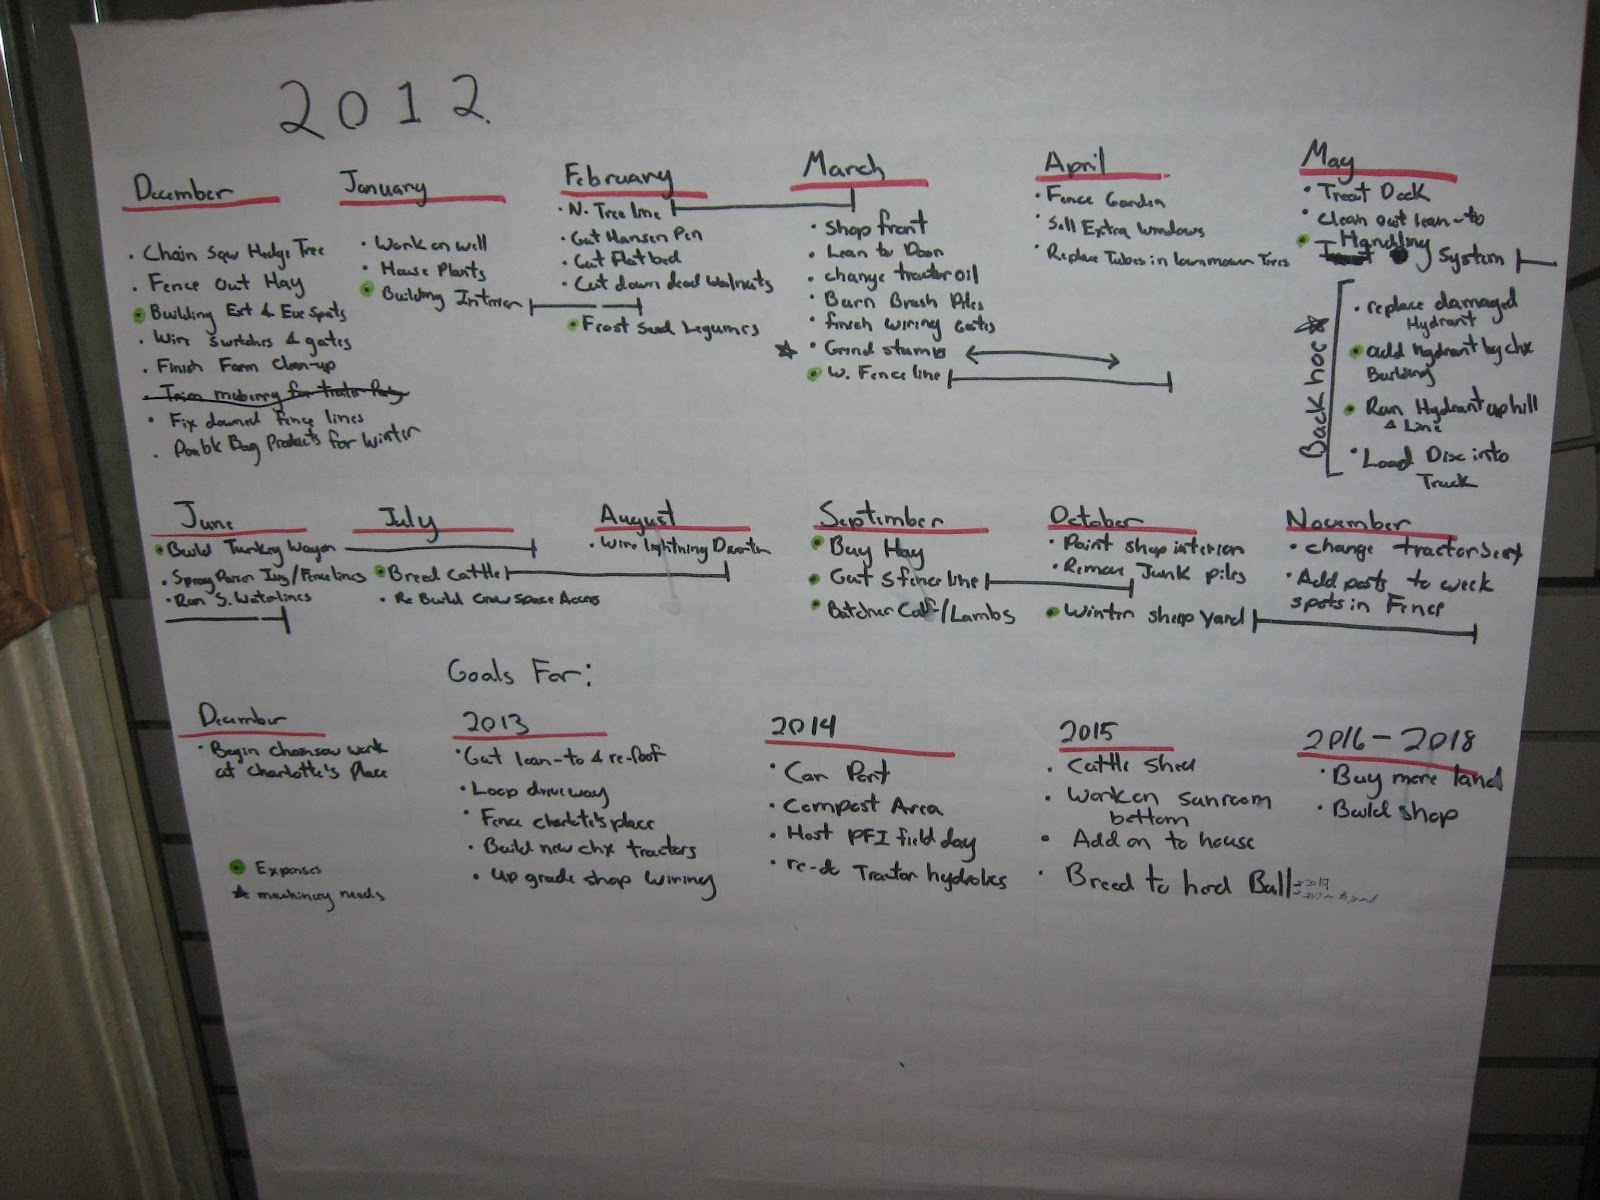 2012
December
• Chain Saw Hedge Tree
• Fence Out Hay
• Building Ext & Eve Spots
• Wire switches & gates
• Finish Farm Clean-up
• Fix downed fence lines
• Double Bag Products for Winter
January
• Work on well
• House Plants
• Building Interior
February
• N. Tree line
• Gut Hansen Pen
• Gut Flatbed
• Cut down dead Walnuts
• Frost Seed Legumes
March
• Shop front
• Lean to Door
• change tractor oil
• Burn Brush Piles
• finish wiring Gates
• Grind stumps
• W. Fence line
April
• Fence Garden
• Sell Extra Windows
• Replace Tubes in Lawnmower Tires
May
• Treat Deck
• Clean out lean-to
• Handling
System
Backhoe
• replace damaged
Hydrant
• add hydrant by chx
Building
• Run Hydrant up hill
& Line
• Load Disc into
Truck
June
• Build Turkey Wagon
• Spray Poison Ivy/Fence lines
• Run S. Waterlines
July
• Breed Cattle
• Re Build Crawspace Access
August
• Wire lightning
September
• Buy Hay
• Gut S fence line
• Butcher Calf/Lambs
October
• Paint shop interior
• Remove Junk piles
• Winter sheep yard
November
• change tractor seat
• Add posts to week
spots in Fence
Goals For:
December
• Begin chainsaw work
at Charlotte's Place
2013
• Gut lean-to & re-roof
• Loop driveway
• Fence charlotte's place
• Build new chx tractors
• upgrade shop wiring
2014
• Car Port
• Compost Area
• Host PFI field day
• re-do Tractor hydrolics
2015
• Cattle shed
• Work on sunroom
bottom
• Add on to house
• Breed to herd Bull
2016-2018
• Buy more land
• Build shop
Expenses
machinery needs